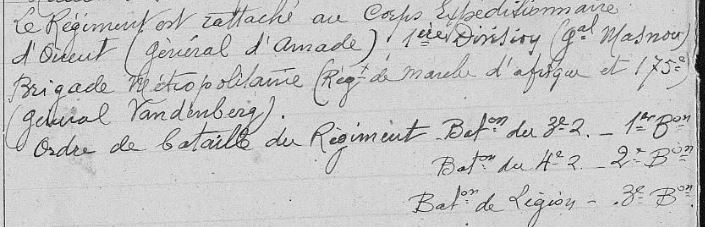 Le Régiment est rattaché au Corps Expéditionnaire
d'Orient (général d'Amade) 1ère Division (Gal Masnou)
Brigade Métropolitaine (Régt de marche d'afrique et 175e)
(général Vandenberg).
Ordre de bataille du Régiment - Baton du 3e Z. - 1er Bon
Baton du 4e Z. - 2e Bon
Baton de Légion - 3e Bon.